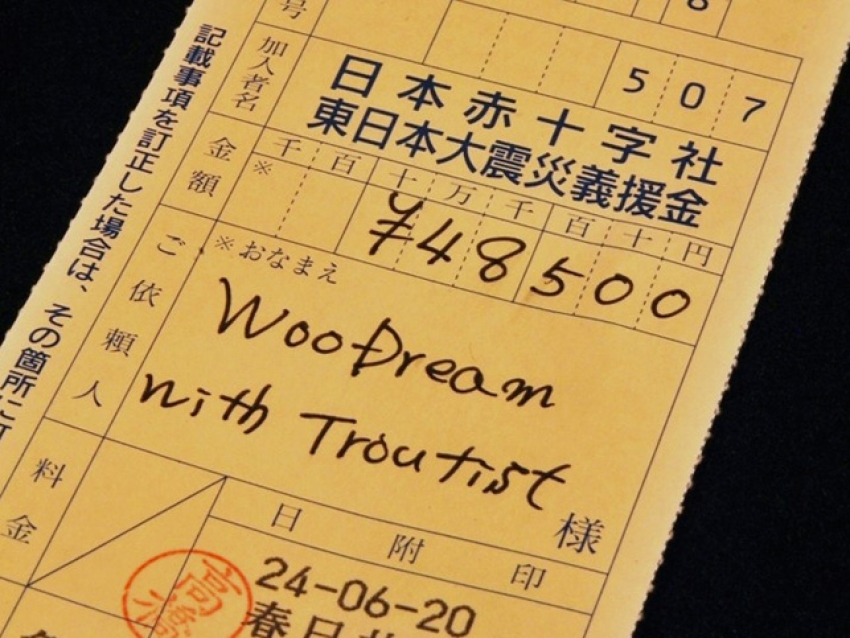 号
5 0 7
加入者名
日本赤十字社
東日本大震災義援金
金額
※
千 百 十 万 千 百 十 円
¥48500
ご依頼人
※おなまえ
WooDream
with Troutist
様
料金
日附印
24-06-20
春日井
記載事項を訂正した場合は、その箇所に訂